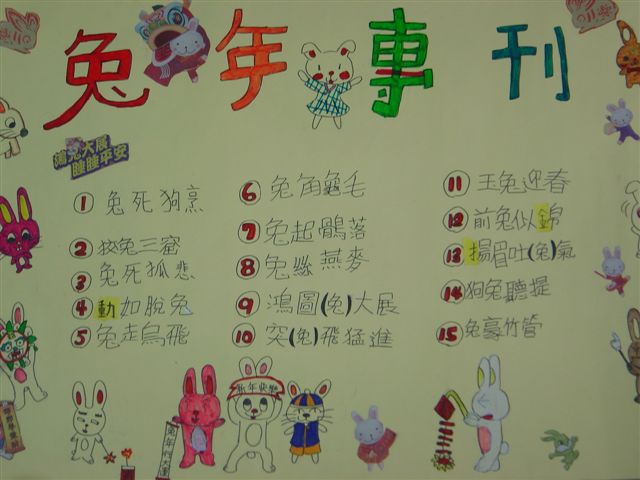 兔年專刊
鴻兔大展
睡睡平安
① 兔死狗烹
② 狡兔三窟
③ 兔死狐悲
④ 動如脫兔
⑤ 兔走烏飛
⑥ 兔角龜毛
⑦ 兔起鶻落
⑧ 兔絲燕麥
⑨ 鴻圖(兔)大展
⑩ 突(兔)飛猛進
⑪ 玉兔迎春
⑫ 前兔似錦
⑬ 揚眉吐(兔)氣
⑭ 狗兔聽提
⑮ 兔豪竹管
新年快樂